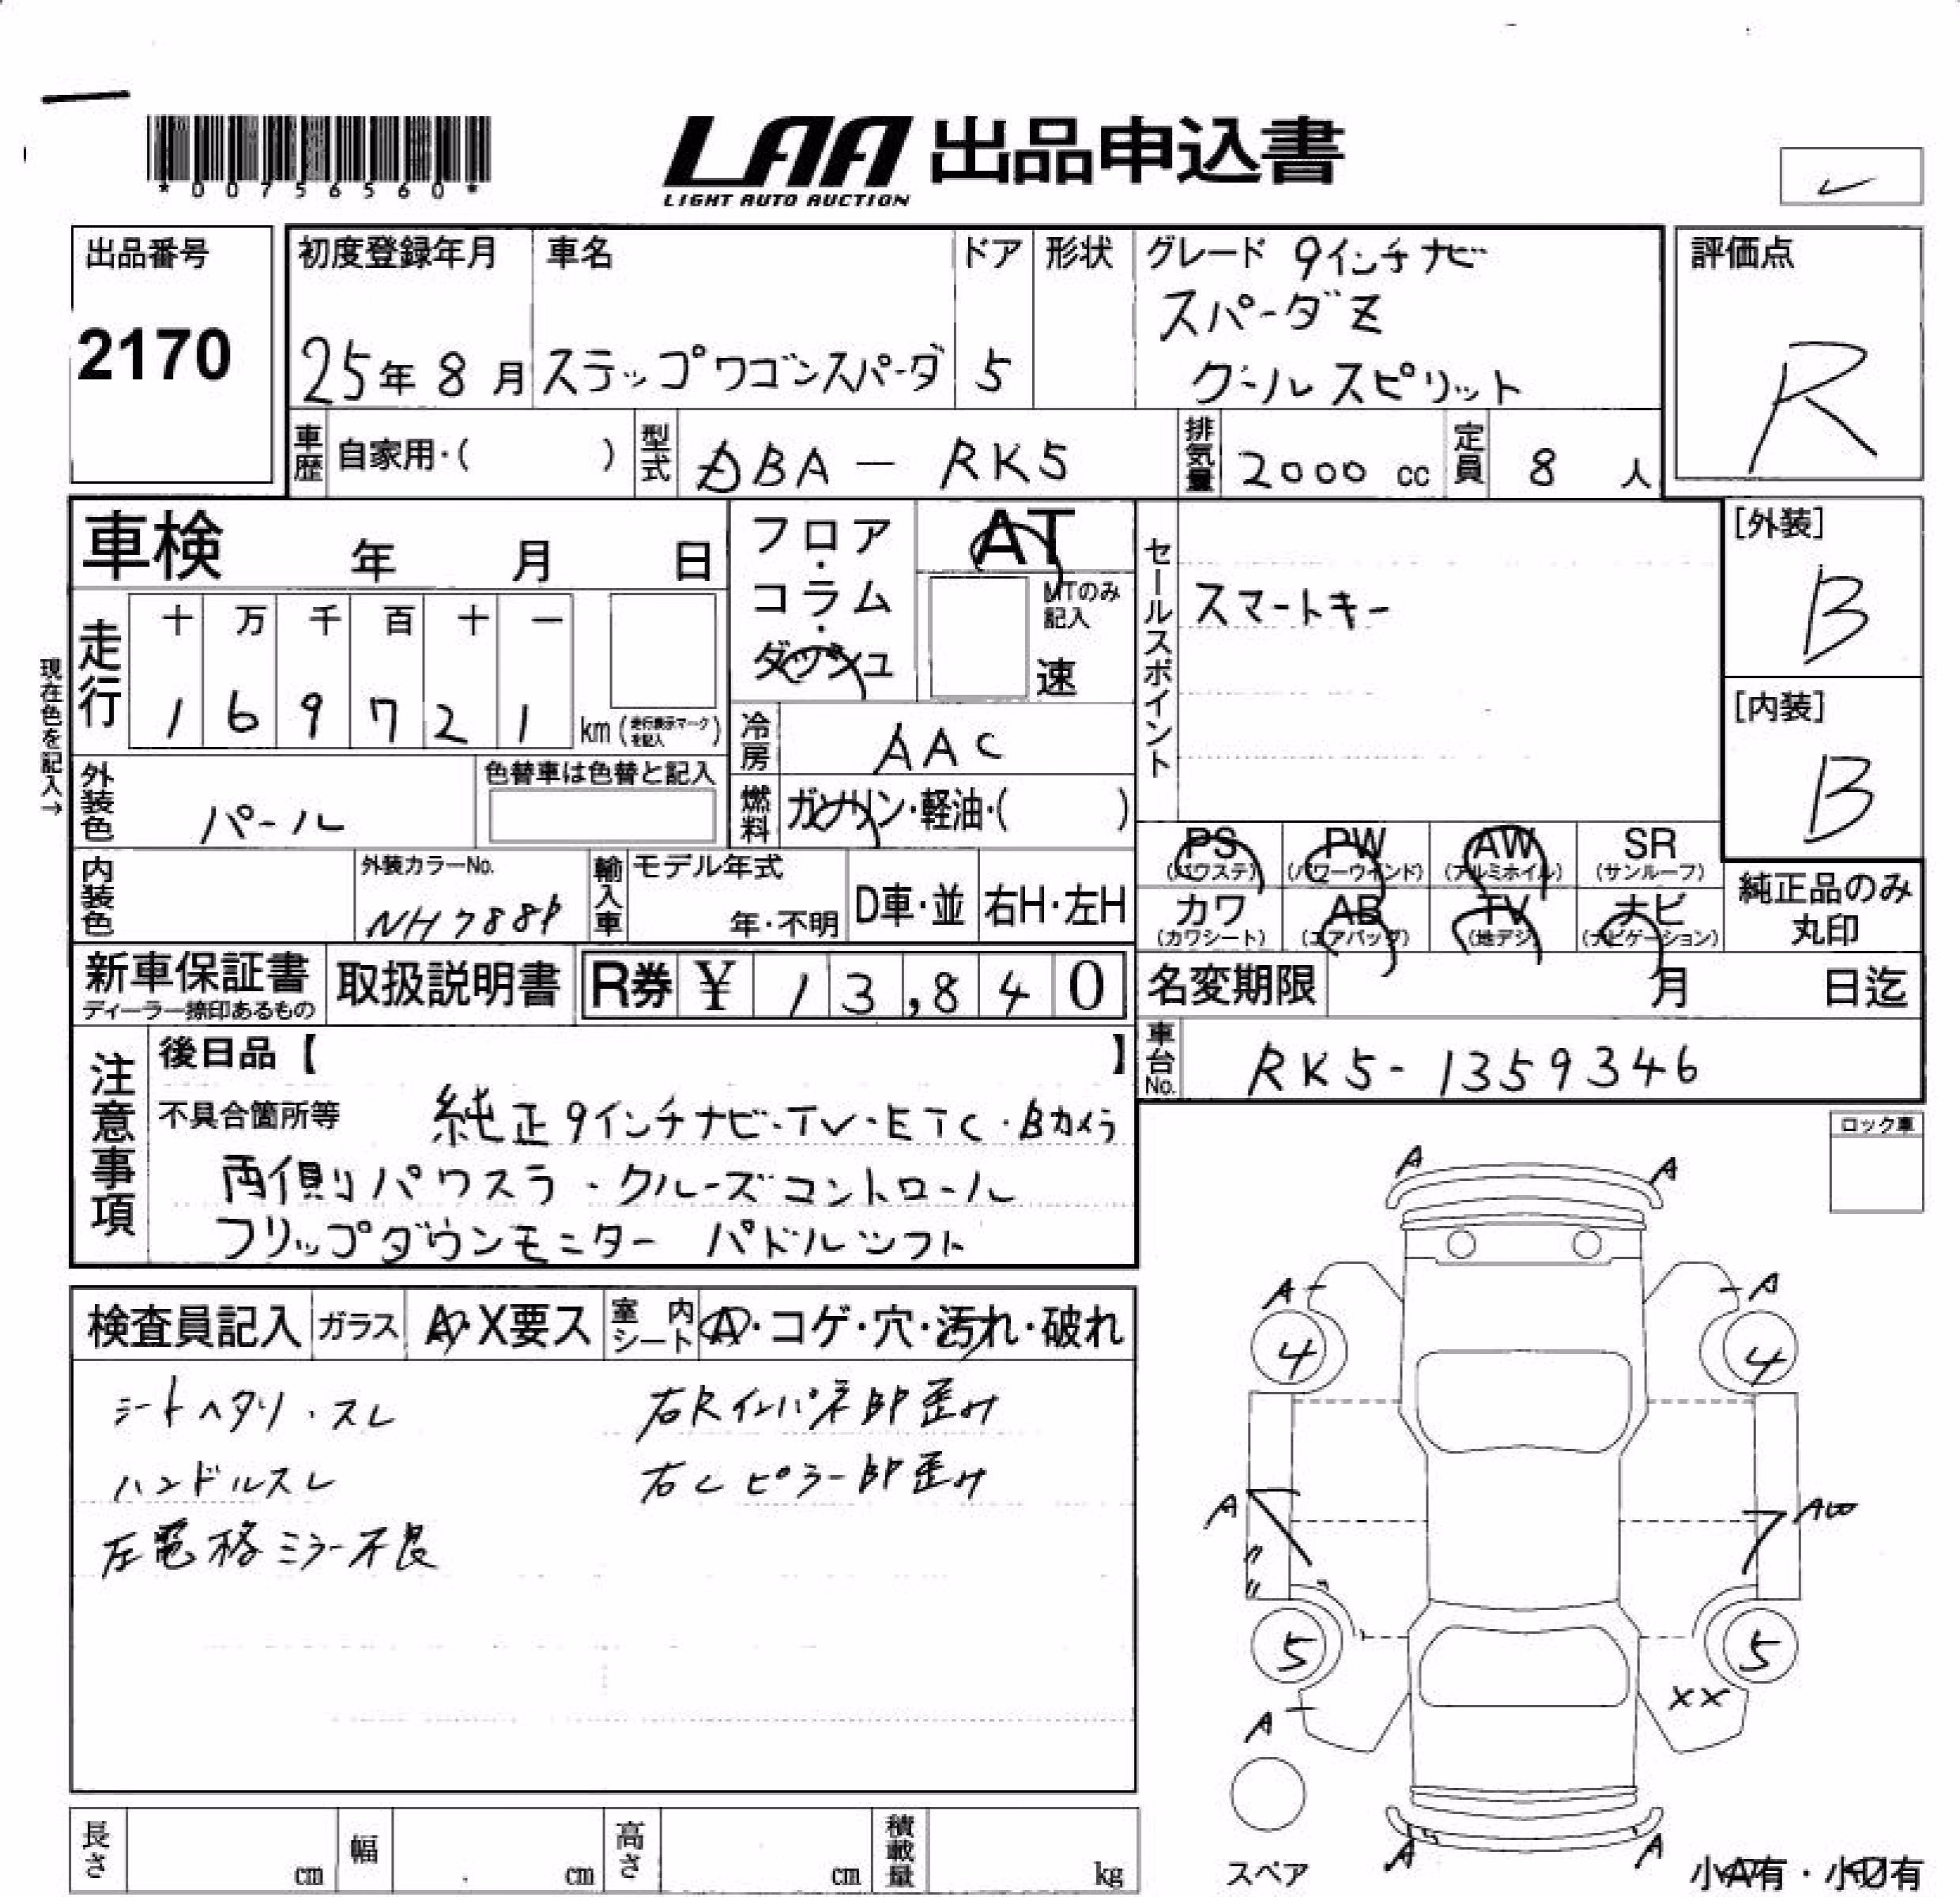 *00756560*
LAA 出品申込書
LIGHT AUTO AUCTION
出品番号
2170
初度登録年月
25年8月
車名
ステップワゴンスパーダ
ドア
5
形状
グレード 9インチナビ
スパーダZ
クールスピリット
評価点
R
車歴 自家用・( )
型式 DBA - RK5
排気量 2000 cc
定員 8 人
車検 年 月 日
フロア・コラム・ダッシュ
AT
MTのみ記入
速
セールスポイント
スマートキー
[外装]
B
[内装]
B
現在色を記入→
走行
十 万 千 百 十 一
1 6 9 7 2 1 km (走行表示マークを記入)
冷房 AAC
外装色 パール
色替車は色替と記入
燃料 ガソリン・軽油・( )
PS (パワステ)
PW (パワーウインド)
AW (アルミホイル)
SR (サンルーフ)
カワ (カワシート)
AB (エアバッグ)
TV (地デジ)
ナビ (ナビゲーション)
純正品のみ丸印
内装色
外装カラーNo.
NH788P
輸入車
モデル年式
年・不明
D車・並
右H・左H
新車保証書
ディーラー捺印あるもの
取扱説明書
R券 ¥ 13,840
名変期限 月 日迄
車台No. RK5-1359346
注意事項
後日品【 】
不具合箇所等 純正9インチナビ・TV・ETC・Bカメラ
両側パワスラ・クルーズコントロール
フリップダウンモニター パドルシフト
ロック車
検査員記入
ガラス A・X要ス
室内シート A・コゲ・穴・汚れ・破れ
シートヘタリ・スレ
右Rインパネ部歪み
ハンドルスレ
右Cピラー部歪み
左電格ミラー不良
A A
A A
4 4
A
5 5
XX
A
A A
スペア
小A有・小U有
長さ cm
幅 cm
高さ cm
積載量 kg